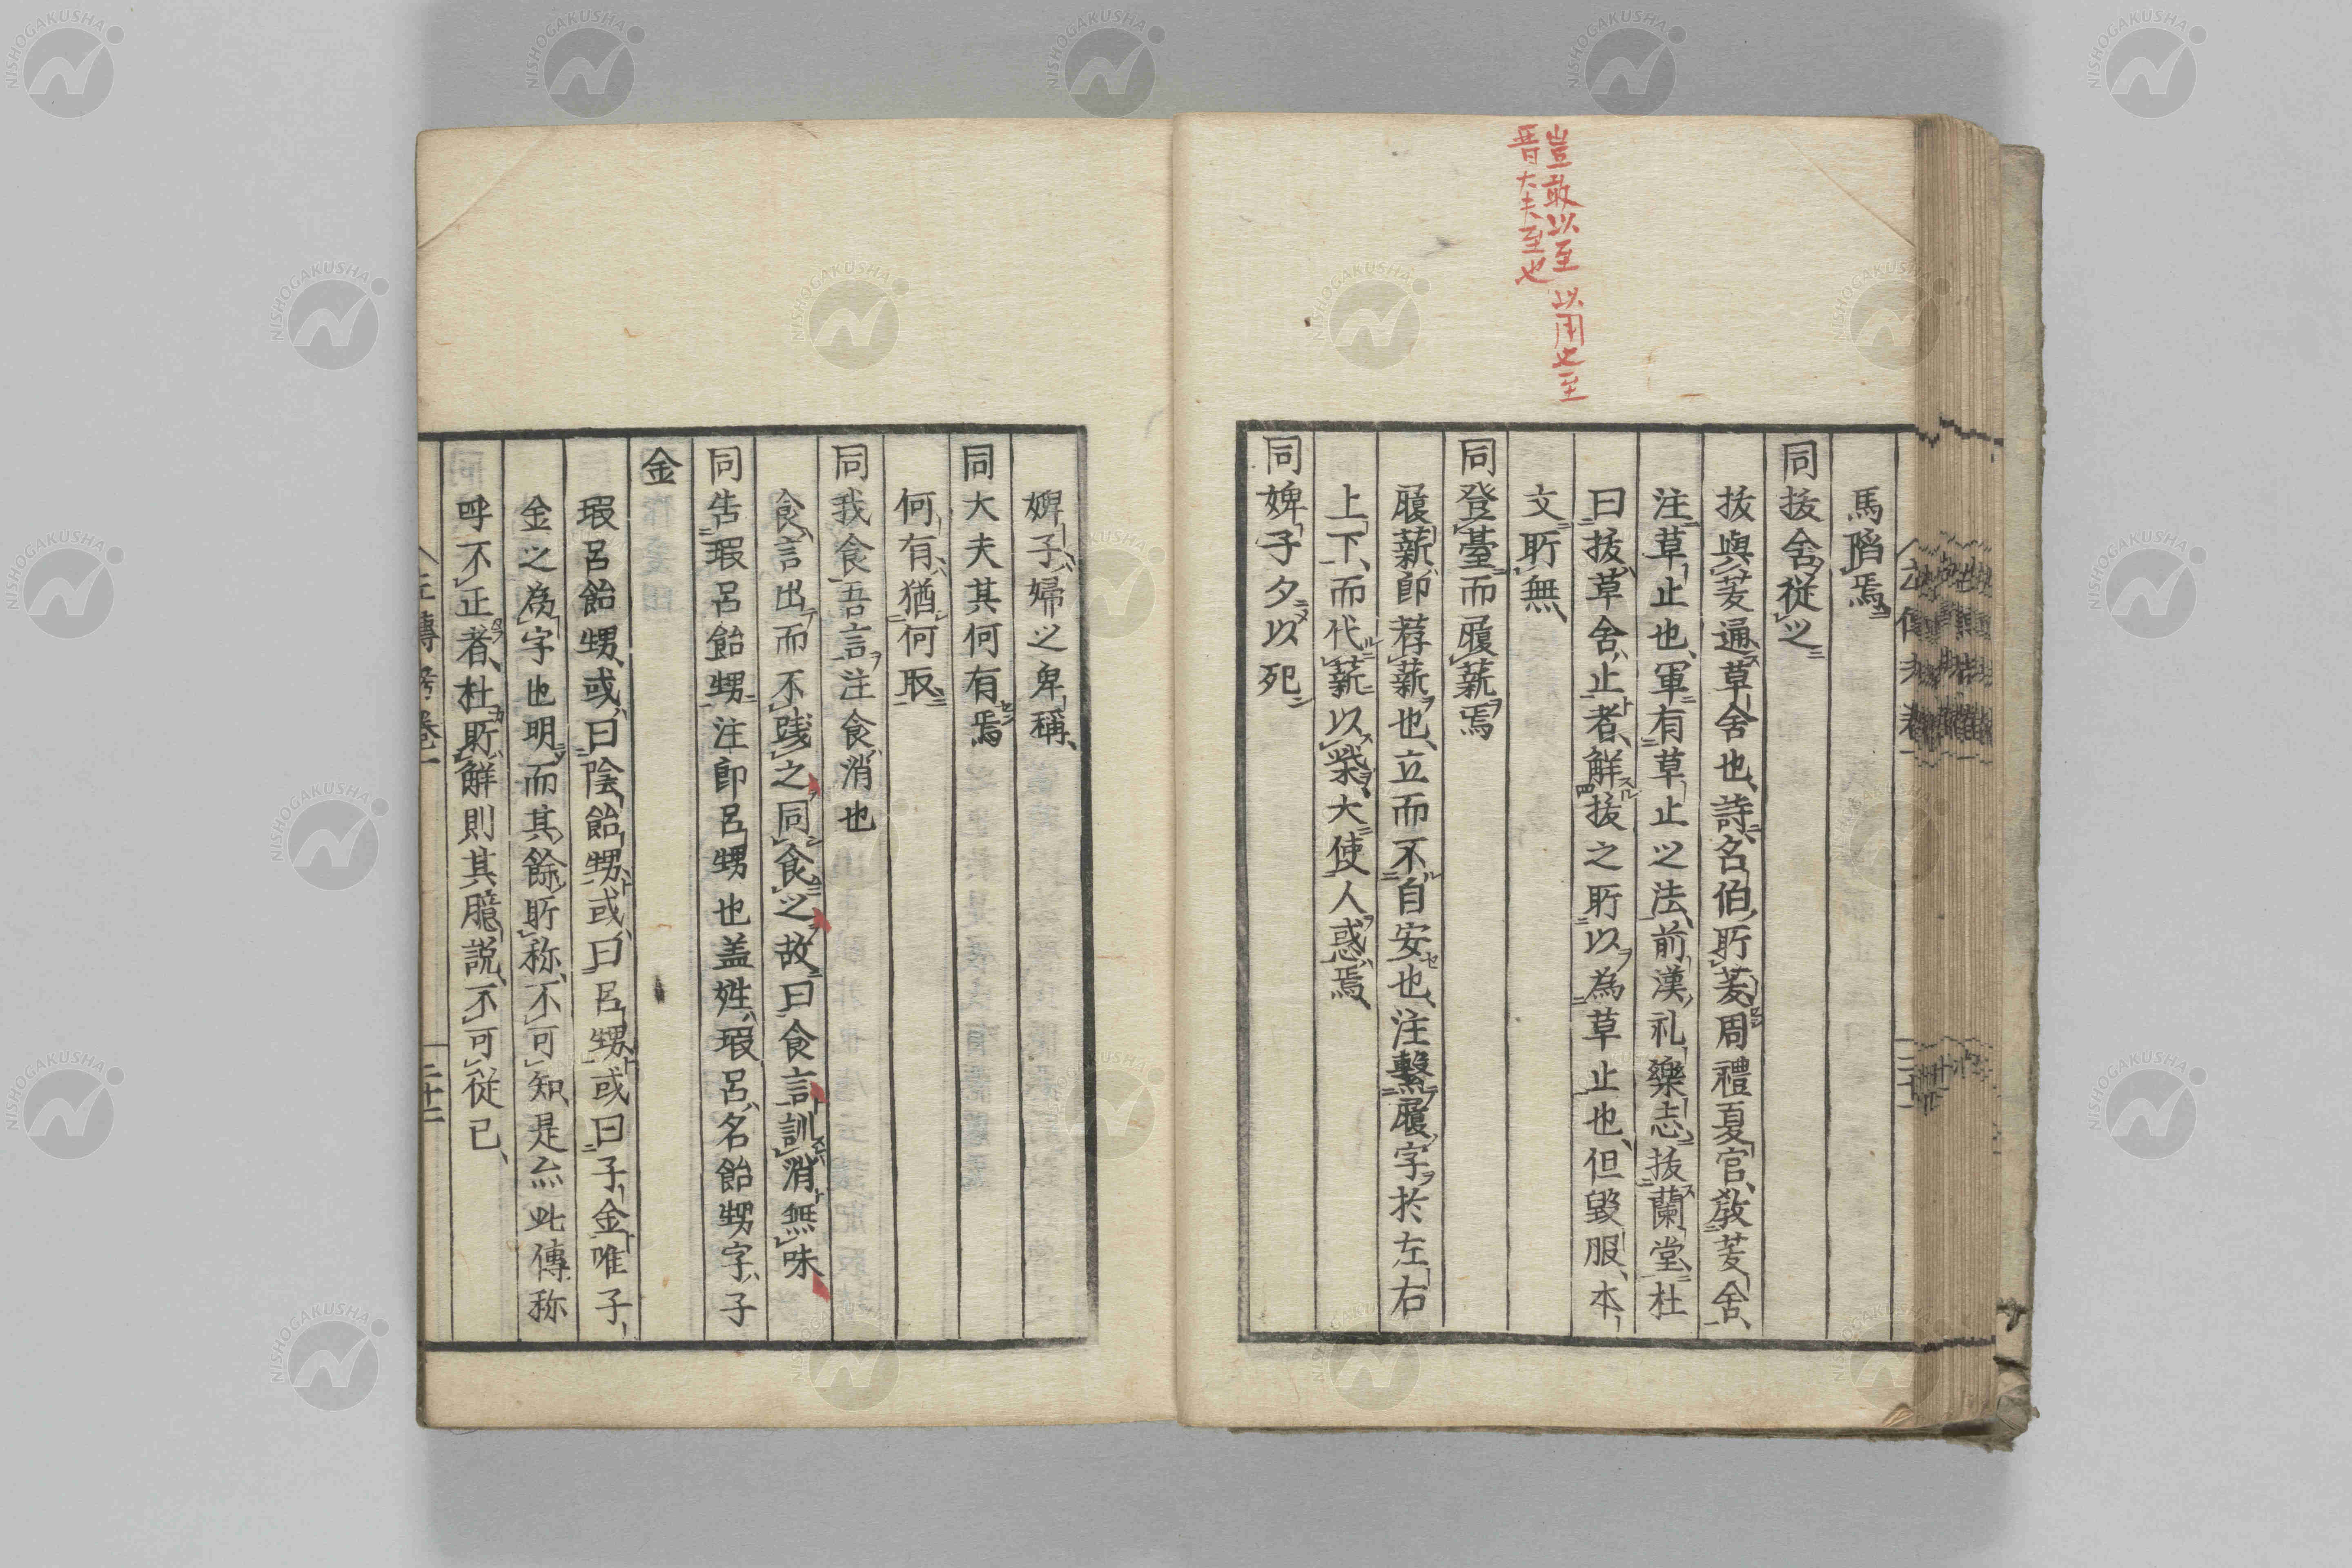 豈敢以至 以用也至
晋大夫至也
馬陷焉
同拔舎從之
拔與茇通草舍也詩名伯所茇周禮夏官敎茇舍
注草止也軍有草止之法前漢礼樂志拔蘭堂杜
曰拔草舍止者解拔之所以為草止也但毀服本
文所無
同登臺而履薪焉
履薪即荐薪也立而不自安也注繫履字於左右
上下而代薪以柴大使人惑焉
同婢子夕以死
婢子婦之卑稱
同大夫其何有焉
何有猶何取
同我食吾言注食消也
食言出而不踐之同食之故曰食言訓消無味
同告瑕呂飴甥注即呂甥也盖姓瑕呂名飴甥字子
金
瑕呂飴甥或曰陰飴甥或曰呂甥或曰子金唯子
金之為字也明而其餘所称不可知是亦此傳称
呼不正者杜所解則其臆説不可從已
左傳考卷一
二十二
NISHOGAKUSHA